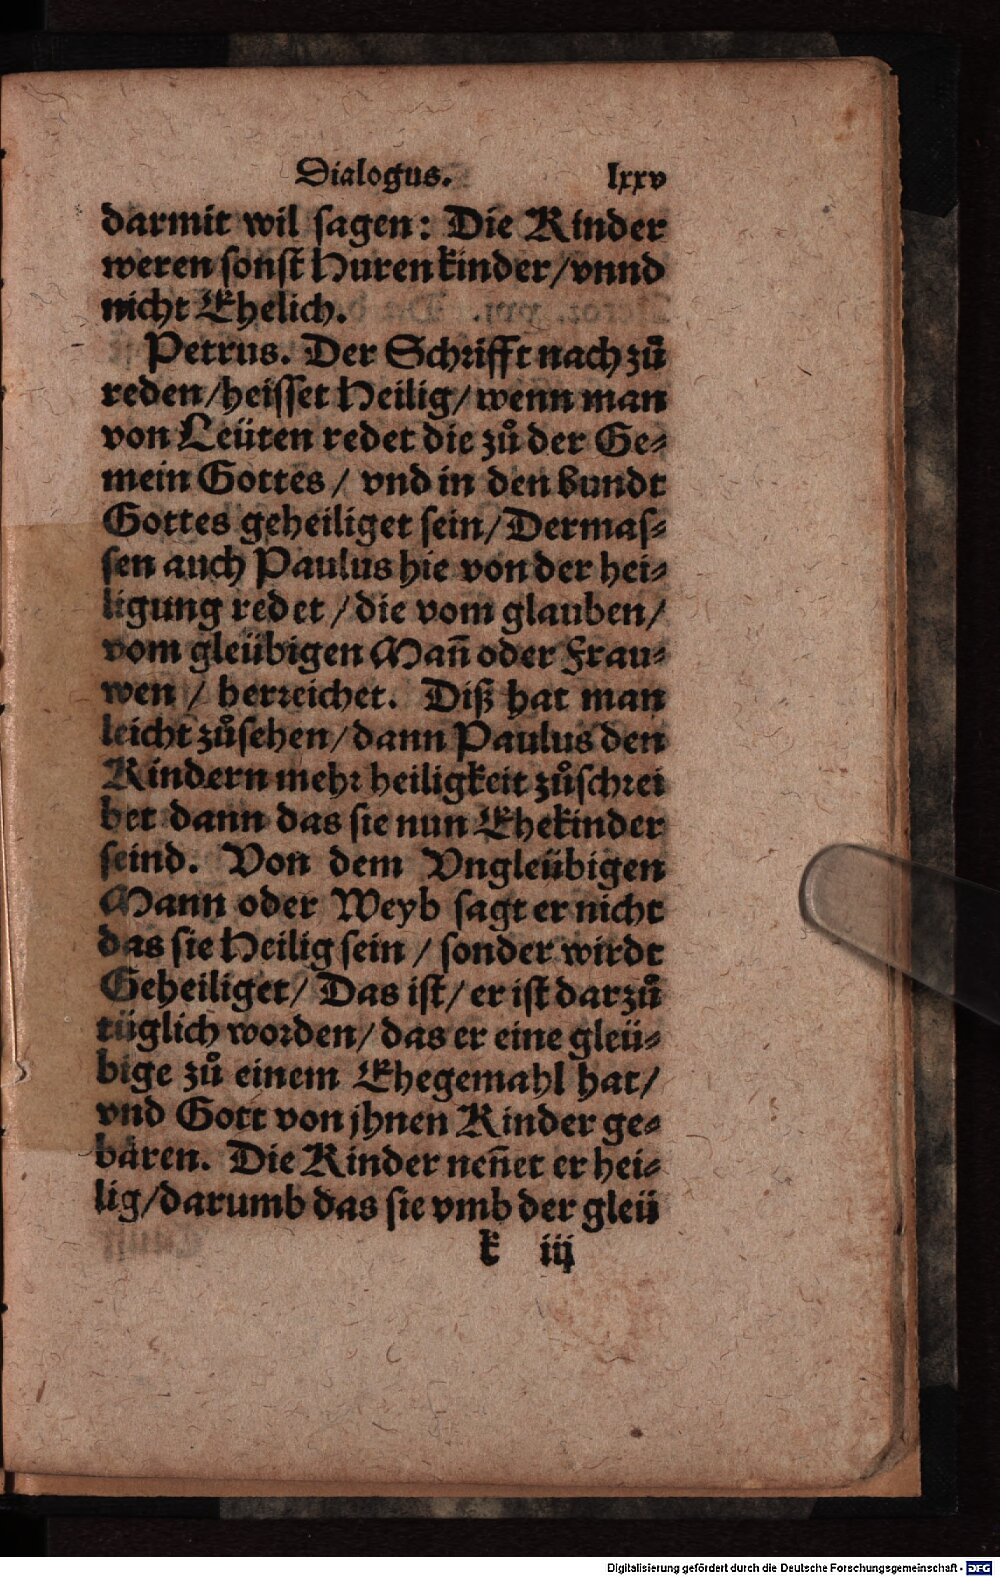 Dialogus. lxxv
darmit wil sagen: Die Kinder
weren sonst Hurenkinder/vnnd
nicht Ehelich.
Petrus. Der Schrifft nach zů
reden/heisset Heilig/wenn man
von Leüten redet die zů der Ge-
mein Gottes / vnd in den bundt
Gottes geheiliget sein/Dermas-
sen auch Paulus hie von der hei-
ligung redet /die vom glauben/
vom gleübigen Mañ oder Frau-
wen / herreichet. Diß hat man
leicht zůsehen/dann Paulus den
Kindern mehr heiligkeit zůschrei
bet dann das sie nun Ehekinder
seind. Von dem Vngleübigen
Mann oder Weyb sagt er nicht
das sie Heilig sein / sonder wirdt
Geheiliget/ Das ist/ er ist darzů
tüglich worden/das er eine gleü-
bige zů einem Ehegemahl hat/
vnd Gott von jhnen Kinder ge-
bären. Die Kinder neñet er hei-
lig/darumb das sie vmb der gleü
k iij
Digitalisierung gefördert durch die Deutsche Forschungsgemeinschaft - DFG